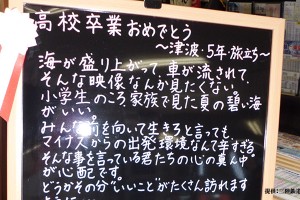 高校卒業おめでとう
〜津波・5年・旅立ち〜
海が盛り上がって、車が流されて、
そんな映像なんか見たくない。
小学生のころ家族で見た夏の碧い海
がいい。
みんな前を向いて生きろと言っても、
マイナスからの出発環境なんて辛すぎる
そんな事を言っている君たちの心の真ん中
が心配です。
どうかその分"いいこと"がたくさん訪れます
ように
提供: